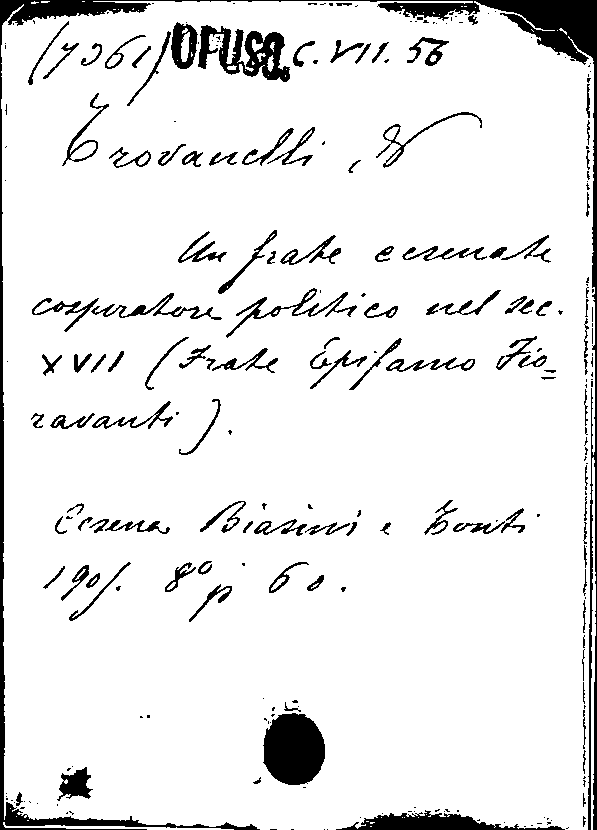 (7361) OPUSC. C. VII. 56
Trovanelli,
Un frate cesenate
cospiratore politico nel sec.
XVII (Frate Epifanio Fio=
ravanti).
Cesena Biasini e Tonti
190 8º p 60.